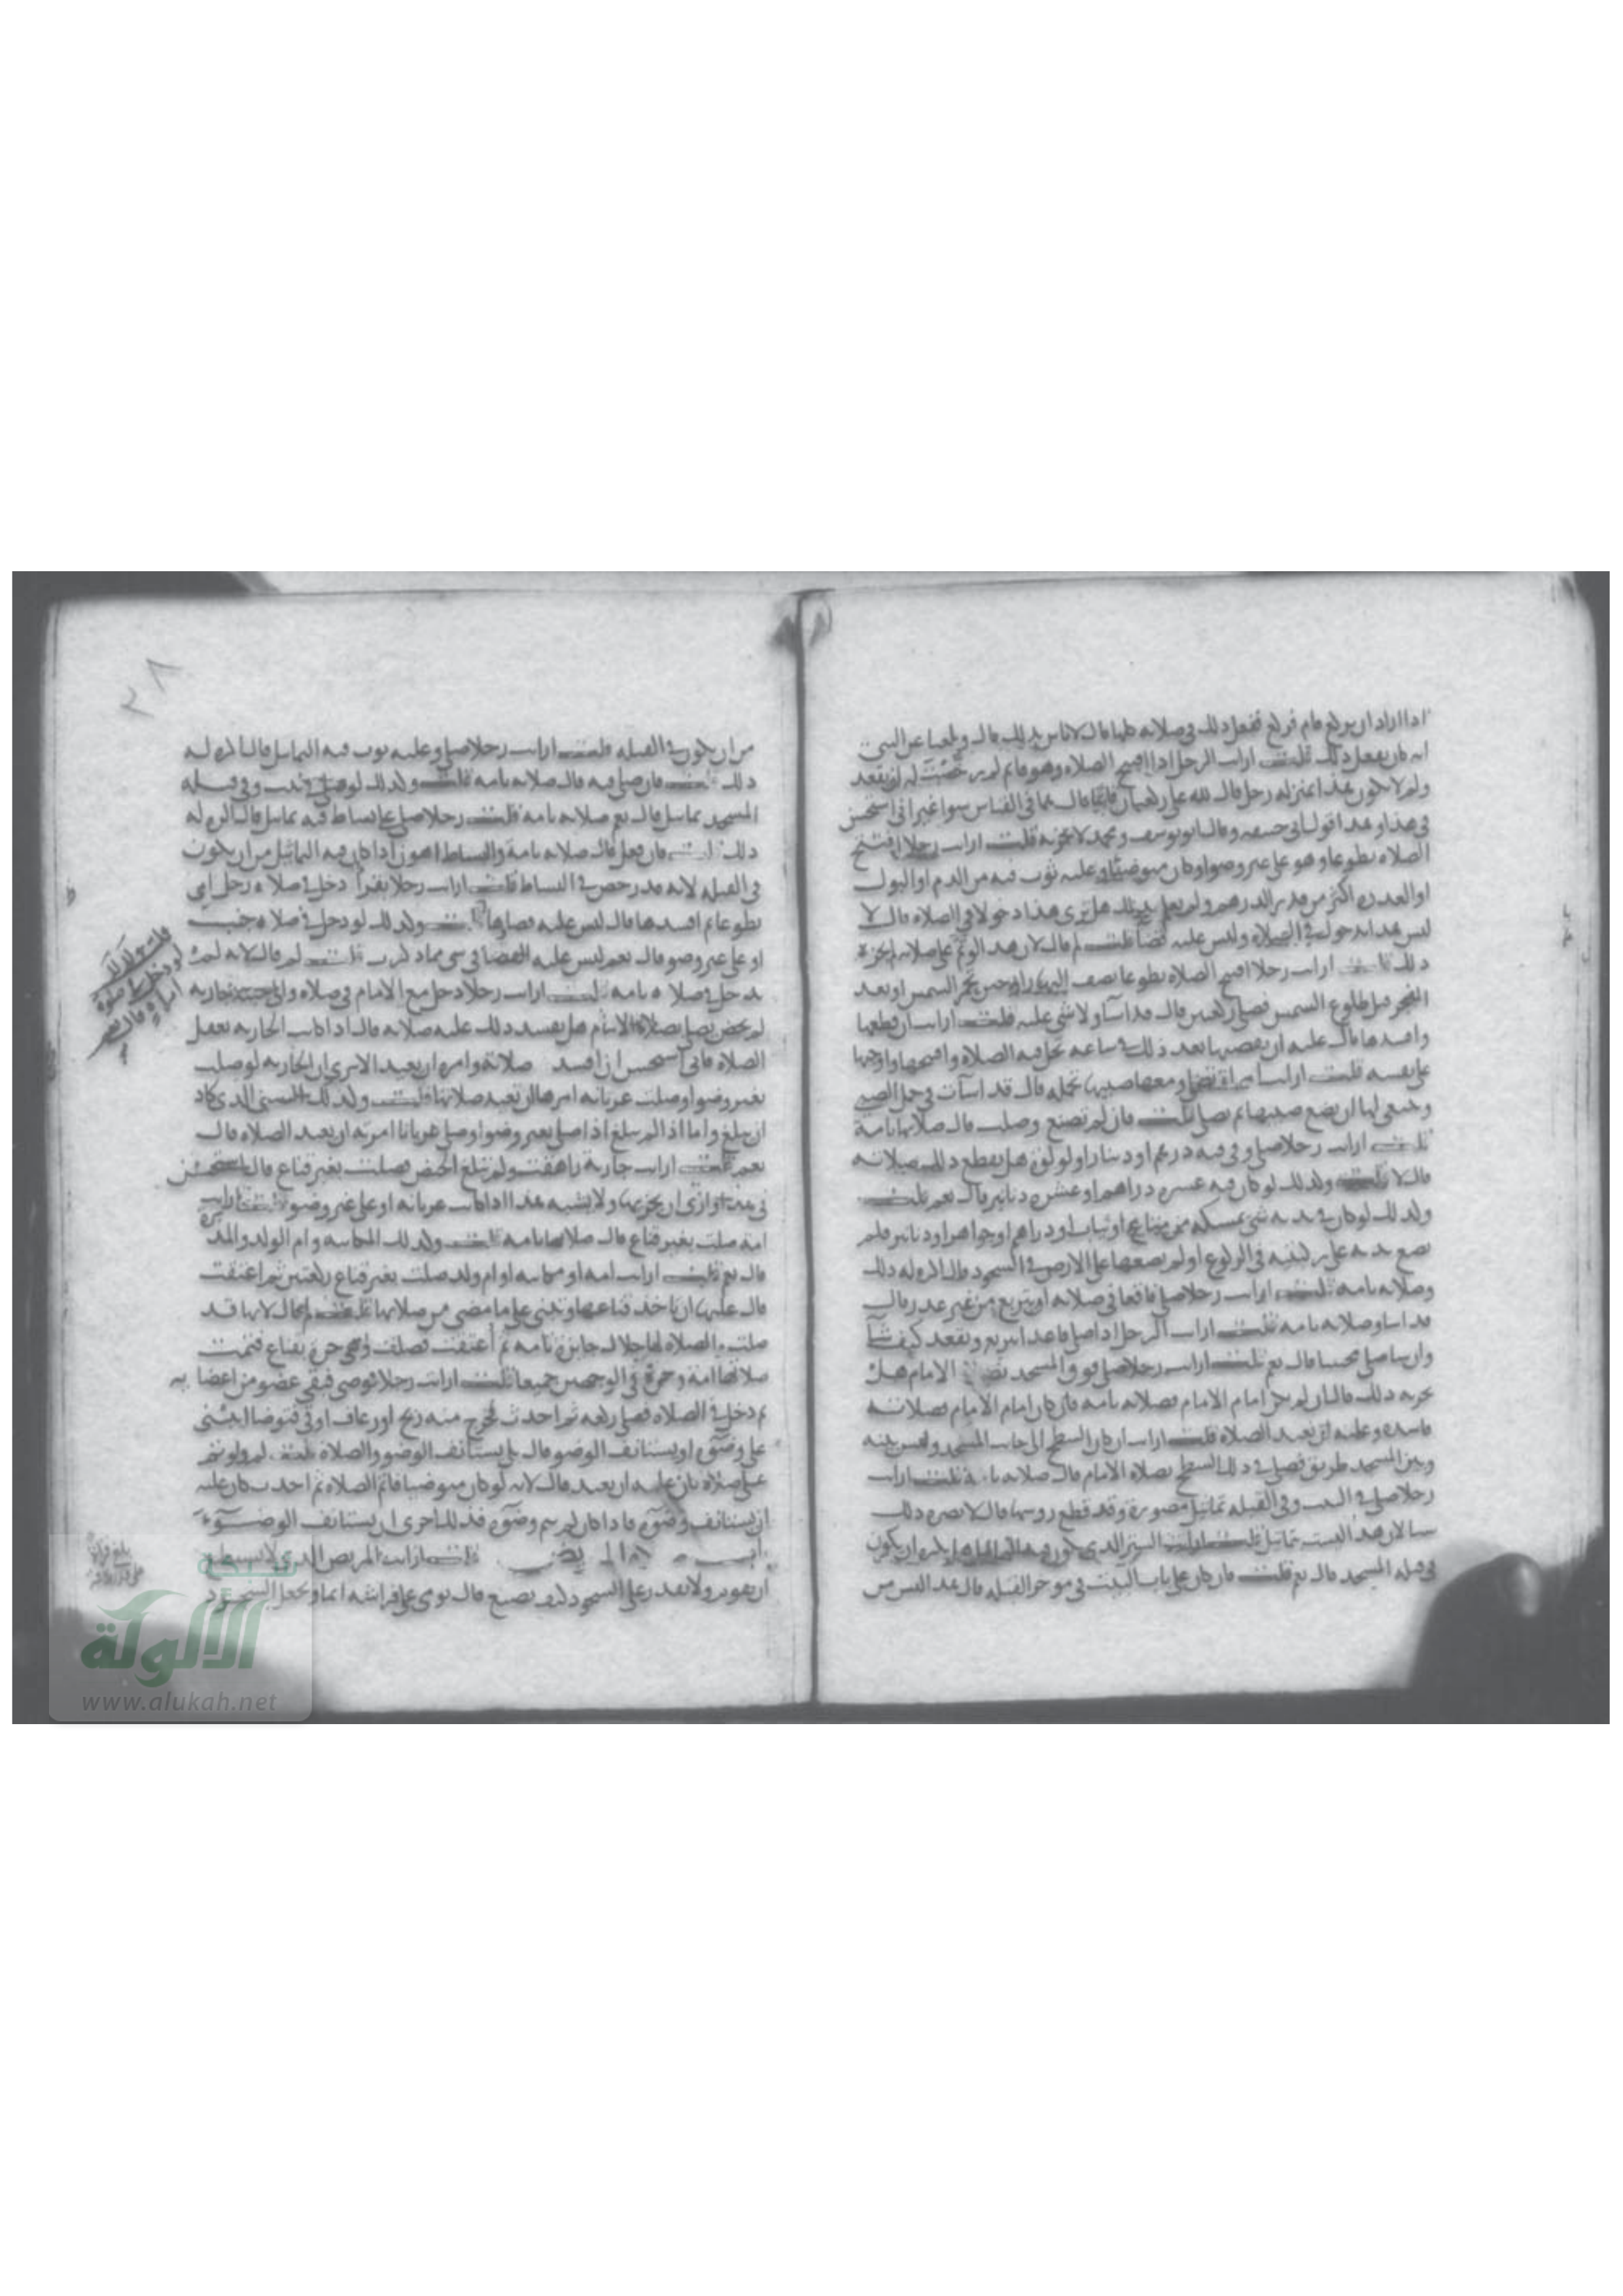 اذا اراد ان يركع قام فركع ففعل ذلك في صلاته كلها قال لا باس بذلك قال وبلغنا عن النبي
انه كان يفعل ذلك قلت ارايت الرجل اذا افتتح الصلاه وهو قائم لم رخصت له ان يقعد
ولم لا يكون هذا بمنزله رجل قال لله علي ركعتان قائما قال هما في القياس سوا غير اني استحسن
في هذا وهذا قول ابي حنيفه وقال ابو يوسف ومحمد لا يجزيه قلت ارايت رجلا افتتح
الصلاه تطوعا وهو على غير وضو او كان متوضيا وعليه ثوب فيه من الدم او البول
او العذره اكثر من قدر الدرهم ولم يعلم بذلك هل ترى هذا دخولا في الصلاه قال لا
ليس هذا بدخول في الصلاه وليس عليه قضا قلت لم قال لان هذا لو تم على صلاته لم يجزه
ذلك قلت ارايت رجلا افتتح الصلاه تطوعا نصف النهار او حين تحمر الشمس او بعد
الفجر قبل طلوع الشمس فصلى ركعتين قال قد اسا ولا شي عليه قلت ارايت ان قطعها
وافسدها قال عليه ان يقضيها بعد ذلك في ساعه تحل فيه الصلاه وافتتحها واوجبها
على نفسه قلت ارايت امراة تصلي ومعها صبيها تحمله قال قد اسآت في حمل الصبي
وينبغي لها ان تضع صبيها ثم تصلي قلت فان لم تصنع وصلت قال صلاتها تامة
قلت ارايت رجلا صلى وفي فيه درهم او دينار او لولؤ هل يقطع ذلك صلاته
قال لا قلت وكذلك لو كان فيه عشره دراهم او عشره دنانير قال نعم قلت
وكذلك لو كان في يده شي يمسكه من متاع او ثياب او دراهم او جواهر او دنانير فلم
يضع يده على ركبتيه في الركوع او لم يضعها على الارض في السجود قال اكره له ذلك
وصلاته تامه قلت ارايت رجلا صلى فاقعا في صلاته او يتربع من غير عذر قال
قد اسا وصلاته تامه قلت ارايت الرجل اذا صلى قاعدا ايتربع ويقعد كيف شآ
وان سا صلى محتبيا قال نعم قلت ارايت رجلا صلى فوق المسجد بصلاة الامام هل
يجزيه ذلك قال ان لم يكن امام الامام فصلاته تامه فان كان امام الامام فصلاتـه
فاسده وعليه ان يعيد الصلاه قلت ارايت ان كان السطح الى جانب المسجد وليس بينه
وبين المسجد طريق فصلى في ذلك السطح بصلاه الامام قال صلاته تامه قلت ارايت
رجلا صلى في البيت وفي القبله تماثيل مصورة وقد قطع روسها قال لا يضره ذلك
سيا لان هذا ليست بتماثيل قلت ارايت الستر الذي يكون فيه التماثيل هل يكره ان يكون
في قبله المسجد قال نعم قلت فان كان على باب البيت في موخر القبله قال هذا ايسر من
٢٨
من ان يكون في القبله قلت ارايت رجلا صلى وعليه ثوب فيه التماثيل قال اكره له
ذلك قلت فان صلى فيه قال صلاته تامه قلت وكذلك لو صلى في بيت وفي قبله
المسجد تماثيل قال نعم صلاته تامه قلت رجلا صلى على بساط فيه تماثيل قال اكره له
ذلك قلت فان فعل قال صلاته تامة والبساط اهون اذا كان فيه التماثيل من ان يكون
في القبله لانه قد رخص في البساط قلت ارايت رجلا يقرا دخل في صلاه رجل امي
تطوعا ثم افسدها قال ليس عليه قضاوها قلت وكذلك لو دخل في صلاه جنب
او على غير وضو قال نعم ليس عليه القضا في شي مما ذكرت قلت لم قال لانه لم
يدخل في صلاه تامه قلت ارايت رجلا دخل مع الامام في صلاه والى جنبه جاريه
لم تحض تصلي بصلاة الامام هل يفسد ذلك عليه صلاته قال اذا كانت الجاريه تعقل
الصلاه فاني استحسن ان افسد صلاته وامره ان يعيد الا ترى ان الجاريه لو صلت
بغير وضو او صلت عريانه امرها ان تعيد صلاتها قلت وكذلك الصبي الذي كاد
ان يبلغ واما اذا لم يبلغ اذا صلى بغير وضو او صلى عريانا امرته ان يعيد الصلاه قال
نعم قلت ارايت جاريه راهقت ولم تبلغ الحيض فصلت بغير قناع قال استحسن
في هذا وارى ان يجزيها ولا يشبه هذا اذا كانت عريانه او على غير وضو قلت ارايت
امة صلت بغير قناع قال صلاتها تامه قلت وكذلك المكاتبه وام الولد والمدبره
قال نعم قلت ارايت امه او مكاتبه او ام ولد صلت بغير قناع ركعتين ثم اعتقت
قال عليها ان تاخذ قناعها وتبني على ما مضى من صلاتها قلت لم قال لانها قد
صلت والصلاه لها حلال جايزة تامه ثم أعتقت فصلت وهي حرة بقناع فتمت
صلاتها امة وحرة في الوجهين جميعا قلت ارايت رجلا توضى فبقي عضو من اعضايه
ثم دخل في الصلاه فصلى ركعه ثم احدث فخرج منه ريح او رعاف او قي فتوضا ايبني
على وضوه او يستانف الوضو قال بل يستانف الوضو والصلاة قلت لم ولو تم
على صلاه كان عليه ان يعيد قال لانه لو كان متوضيا فاتم الصلاه ثم احدث كان عليه
ان يستانف وضوه فاذا كان لم يتم وضوه فذلك احرى ان يستانف الوضـوء
باب صلاه المريض قلت ارايت المريض الذي لا يستطيع
ان يقوم ولا يقدر على السجود كيف يصنع قال يومي على فراشه ايما ويجعل السجود
قلت وكذلك
لو دخل في صلوة
امراه قال نعم
بلغ قراة
شبكة
الألوكة
www.alukah.net